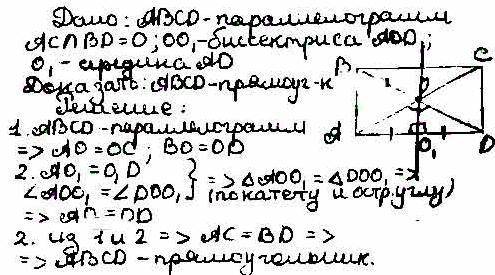 Дано: ABCD - параллелограмм
AC∩BD=O; OO₁ - биссектриса AOD;
O₁ - середина AD
Доказать: ABCD - прямоуг-к
Решение:
1. ABCD - параллелограмм
=> AO=OC; BO=OD
2. AO₁=O₁D
∠AOO₁=∠DOO₁ } => △AOO₁=△DOO₁ =>
(по катету и остр. углу)
=> AO=OD
2. из 1 и 2 => AC=BD =>
=> ABCD - прямоугольник.
B
C
O
A
O₁
D